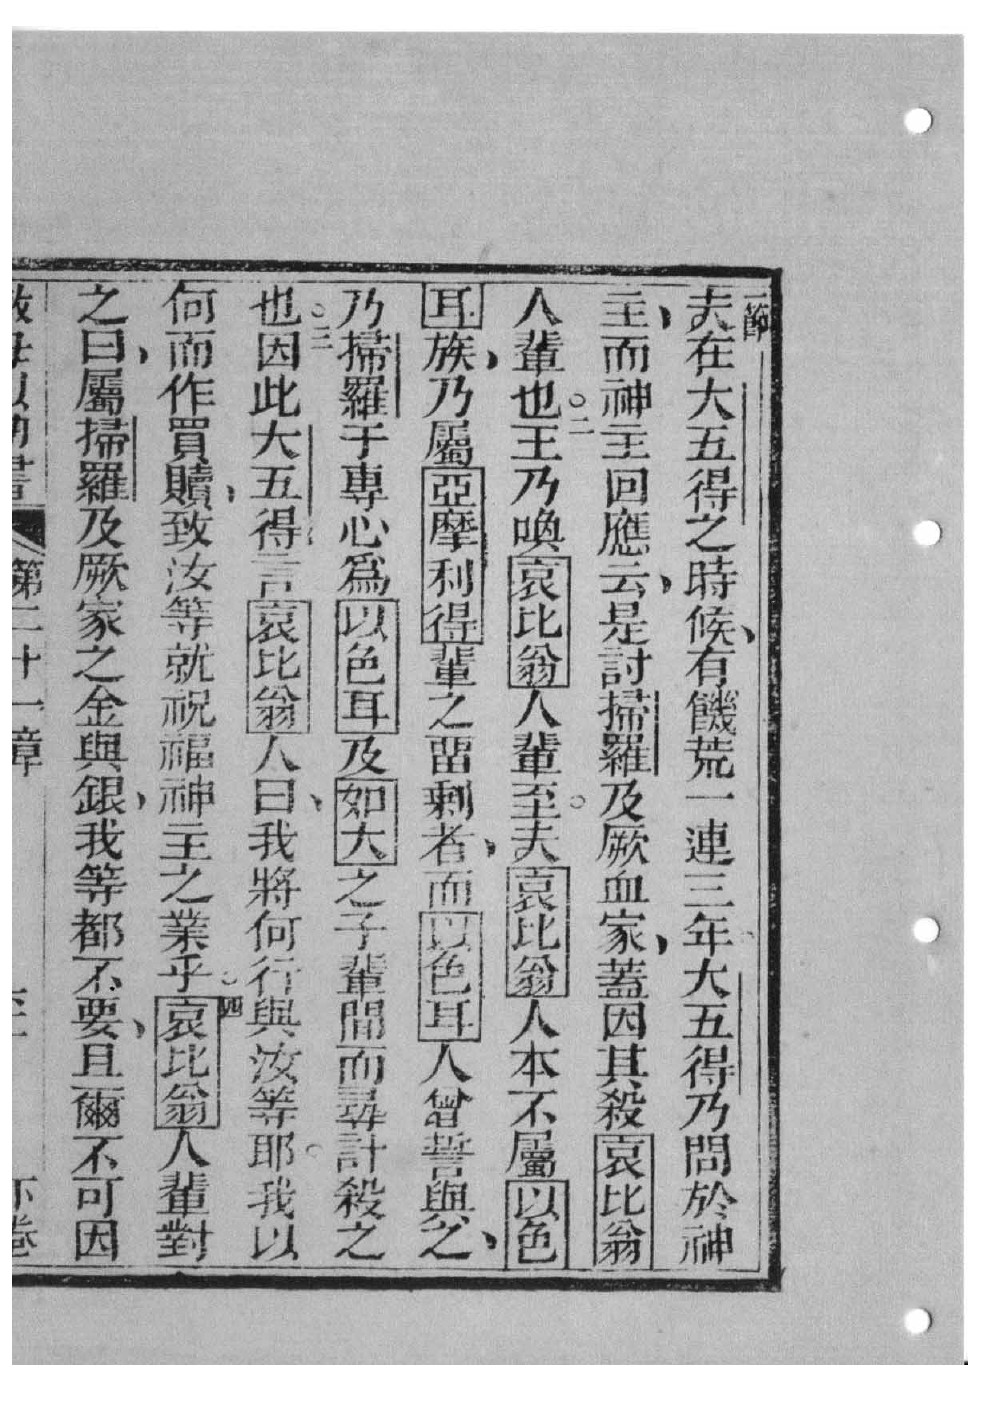 一節
夫在大五得之時候、有饑荒一連三年。大五得乃問於神
主、而神主回應云、是討掃羅及厥血家、蓋因其殺哀比翁
人輩也。二王乃喚哀比翁人輩至。夫哀比翁人本不屬以色
耳族、乃屬亞摩利得輩之畱剩者、而以色耳人曾誓與之、
乃掃羅于專心為以色耳及如大之子輩間而尋計殺之
也。三因此大五得言哀比翁人曰、我將何行與汝等耶。我以
何而作買贖、致汝等就祝福神主之業乎。四哀比翁人輩對
之曰、屬掃羅及厥家之金與銀、我等都不要、且爾不可因
書 第二十一章 下卷